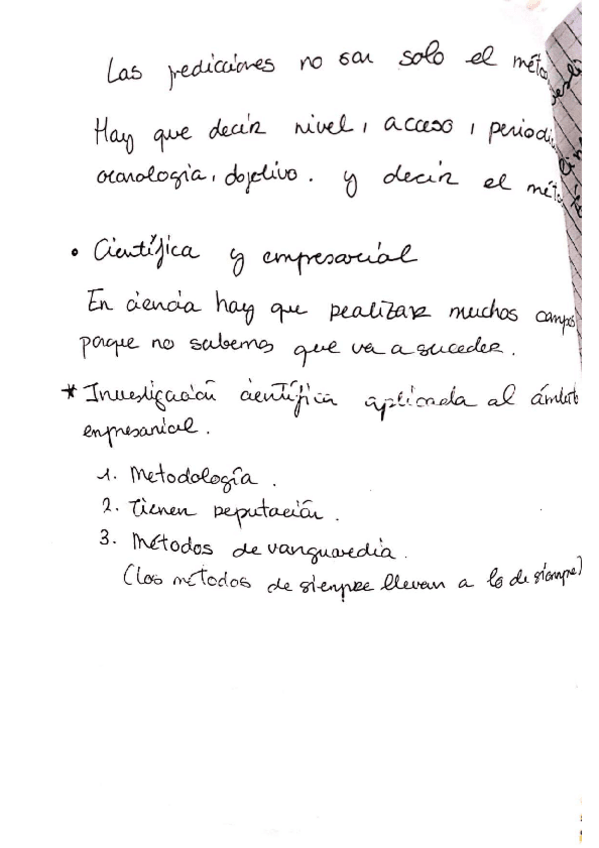 Las predicciones no son solo el méto
Hay que decir nivel, acceso, periodi
cronologia, objetivo. y decir el mét
• Científica y empresarial
En ciencia hay que realizar muchos campos
porque no sabemos que va a suceder.
* Investigación científica aplicada al ámbito
empresarial.
1. Metodología.
2. Tienen reputación.
3. Métodos de vanguardia.
(Los métodos de siempre llevan a lo de siempre)